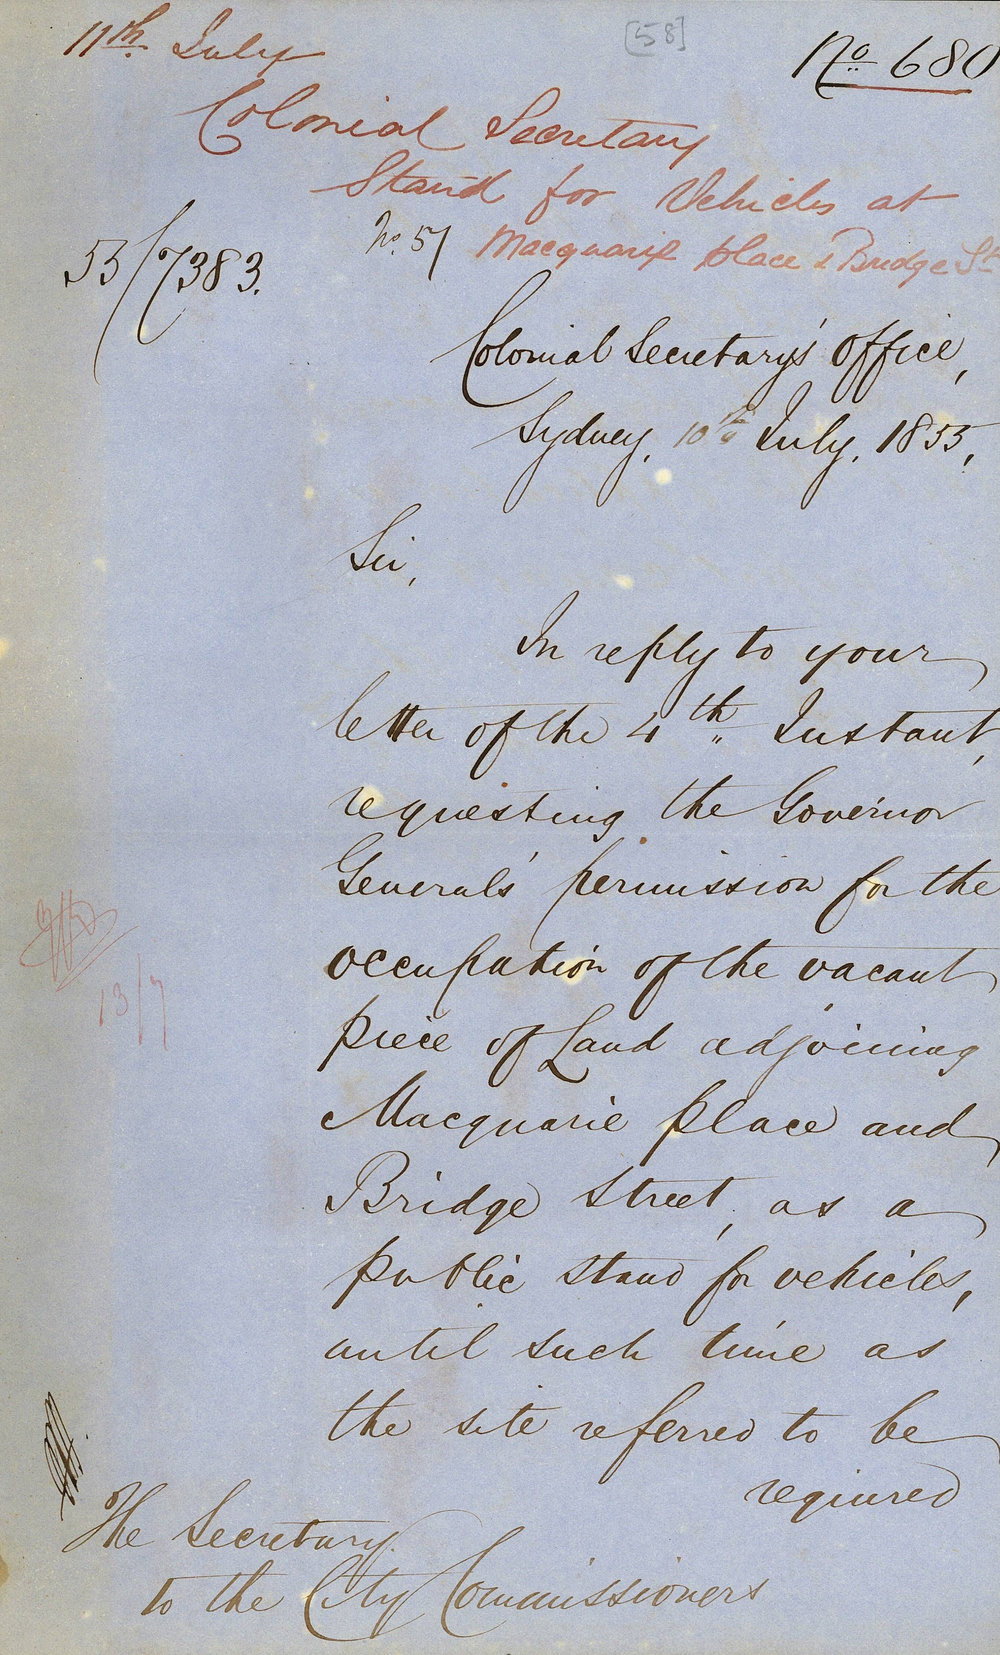 11th July
[58]
No 680
Colonial Secretary
Stand for Vehicles at
Macquarie place & Bridge St
No. 57
55/7383.
Colonial Secretary's Office,
Sydney, 10th July, 1855,
Sir,
In reply to your
letter of the 4th Instant,
requesting the Governor
General's permission for the
occupation of the vacant
piece of Land adjoining
Macquarie place and
Bridge Street, as a
public stand for vehicles,
until such time as
the site referred to be
required
13/7
The Secretary
to the City Commissioners